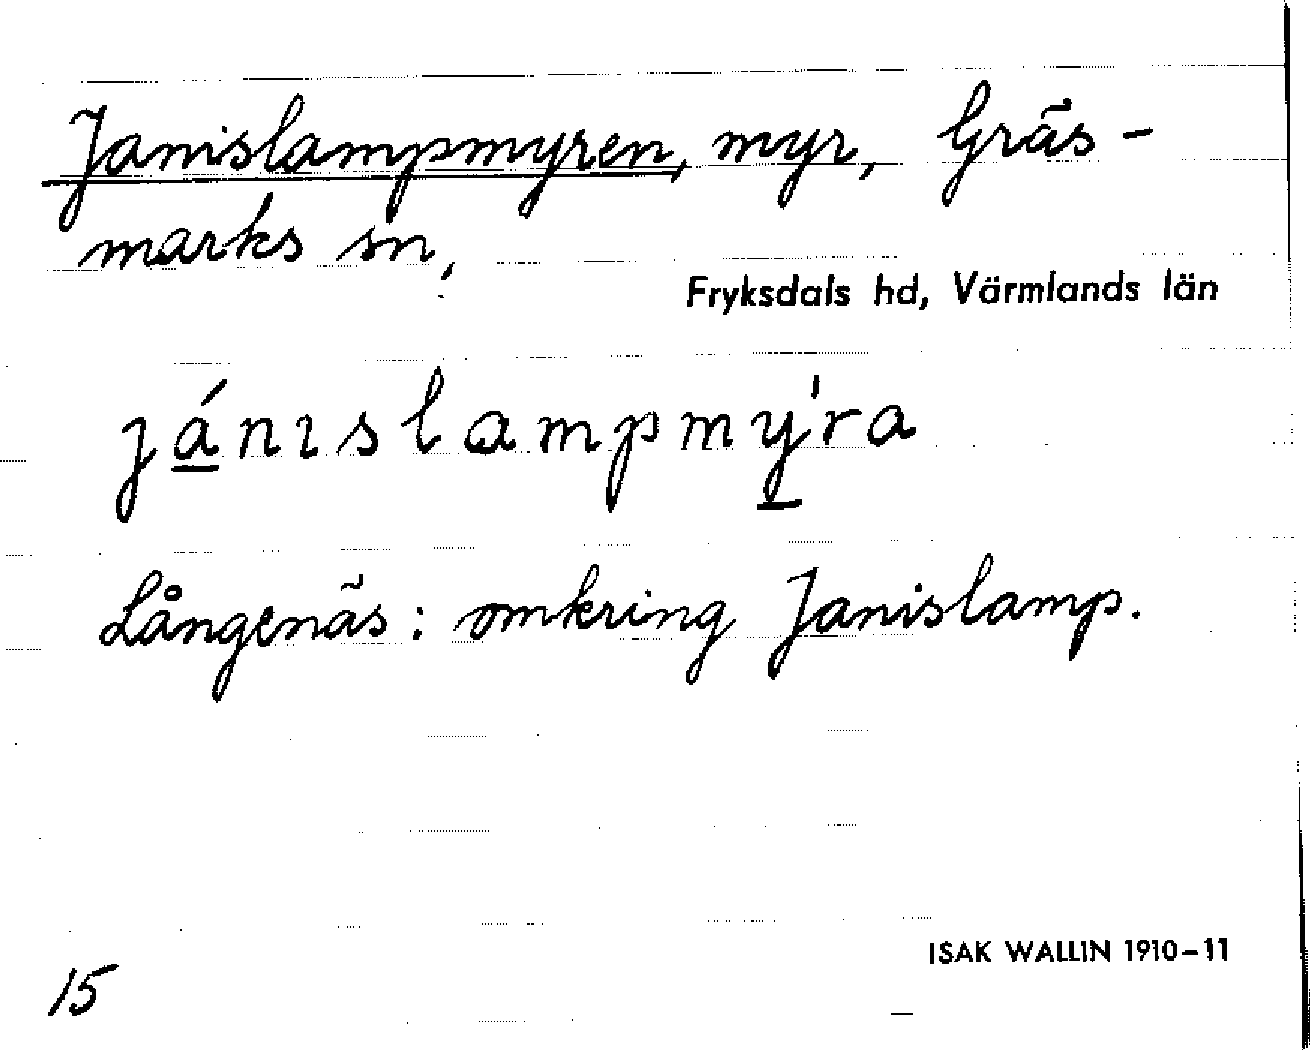 Janislampmyren, myr, Gräs-
marks sn,
Fryksdals hd, Värmlands län
jánıslampmý̠ra
Långenäs: omkring Janislamp.
ISAK WALLIN 1910-11
15